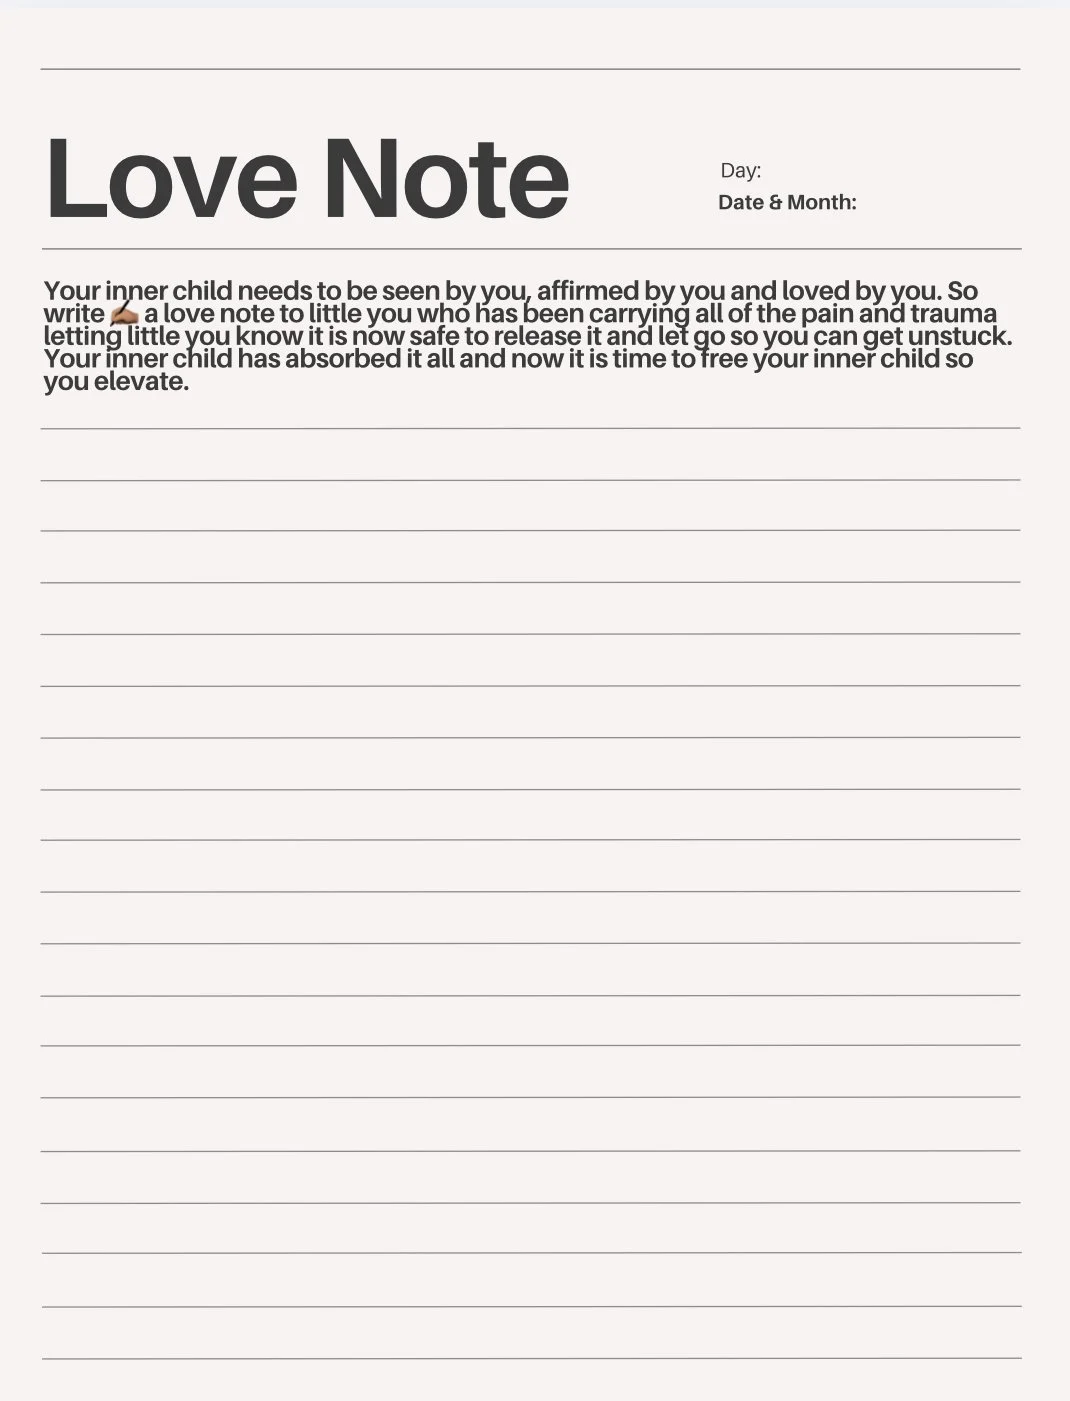 Love Note
Day:
Date & Month:
Your inner child needs to be seen by you, affirmed by you and loved by you. So
write ✍🏽 a love note to little you who has been carrying all of the pain and trauma
letting little you know it is now safe to release it and let go so you can get unstuck.
Your inner child has absorbed it all and now it is time to free your inner child so
you elevate.